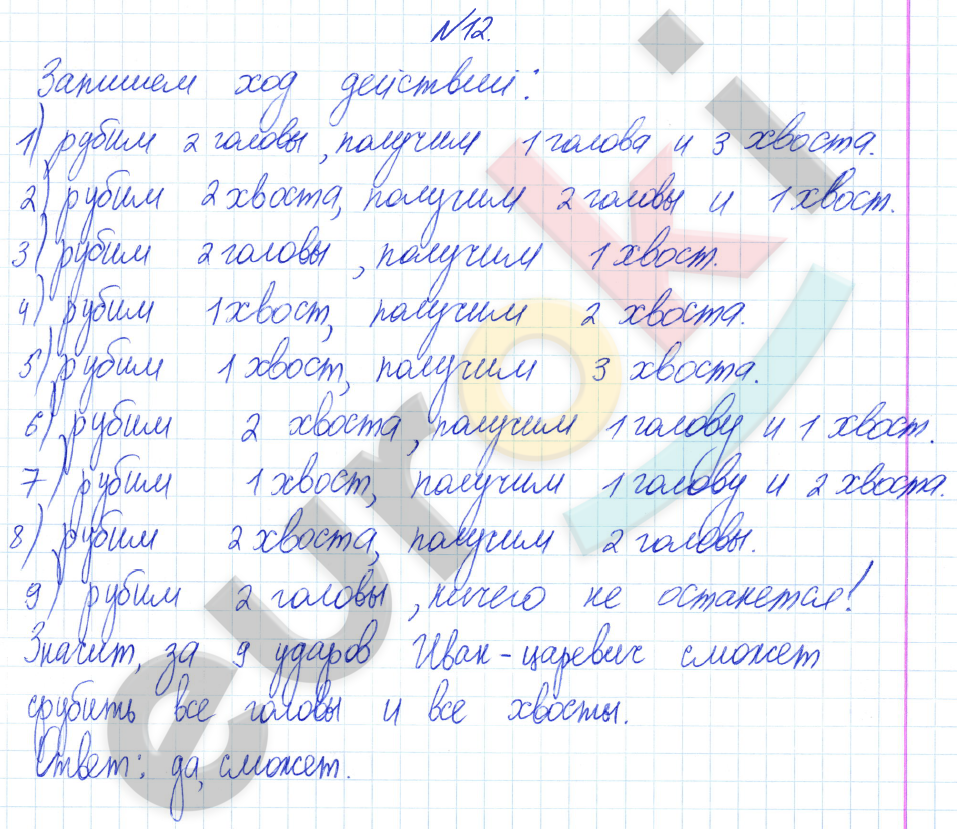 №12.
Запишем ход действий:
1) рубим 2 головы, получим 1 голова и 3 хвоста.
2) рубим 2 хвоста, получим 2 головы и 1 хвост.
3) рубим 2 головы, получим 1 хвост.
4) рубим 1 хвост, получим 2 хвоста.
5) рубим 1 хвост, получим 3 хвоста.
6) рубим 2 хвоста, получим 1 голову и 1 хвост.
7) рубим 1 хвост, получим 1 голову и 2 хвоста.
8) рубим 2 хвоста, получим 2 головы.
9) рубим 2 головы, ничего не останется!
Значит, за 9 ударов Иван-царевич сможет
срубить все головы и все хвосты.
Ответ: да, сможет.
euroki